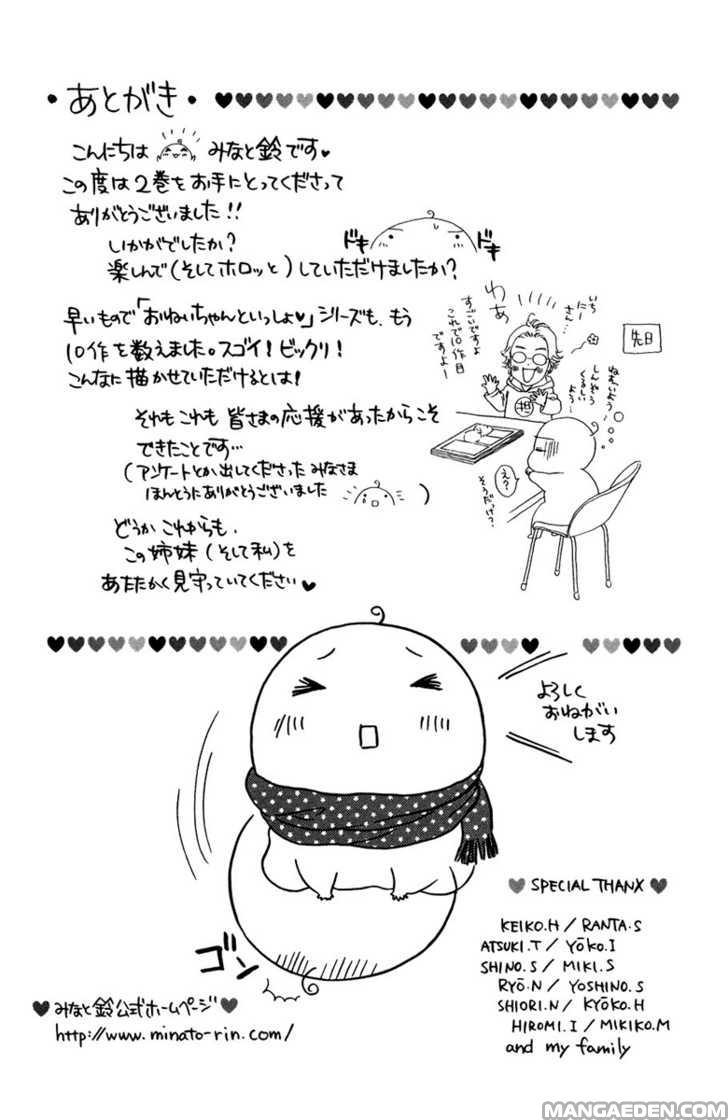 ・あとがき・
こんにちは みなと鈴です♥
この度は2巻をお手にとってくださって
ありがとうございました!!
いかがでしたか?
楽しんで(そしてホロッと)していただけましたか?
ドキ
ドキ
早いもので「おねいちゃんといっしょ♥」シリーズも、もう
10作を数えました。スゴイ!ビックリ!
こんなに描かせていただけるとは!
先日
いちにーさん…
わぁ
すごいですよ
これで10作目
ですよー
担
ねむいよう…
しんぞう
くるしい
よう…
え?
そうだっけ?
それもこれも皆さまの応援があったからこそ
できたことです…
(アンケートとか出してくださったみなさま
ほんとうにありがとうございました )
どうかこれからも、
この姉妹(そして私)を
あたたかく見守っていてください♥
よろしく
おねがい
します
ゴン
♥ SPECIAL THANX ♥
KEIKO.H / RANTA.S
ATSUKI.T / YŌKO.I
SHINO.S / MIKI.S
RYŌ.N / YOSHINO.S
SHIORI.N / KYŌKO.H
HIROMI.I / MIKIKO.M
and my family
♥みなと鈴公式ホームページ♥
http://www.minato-rin.com/
MANGAEDEN.COM